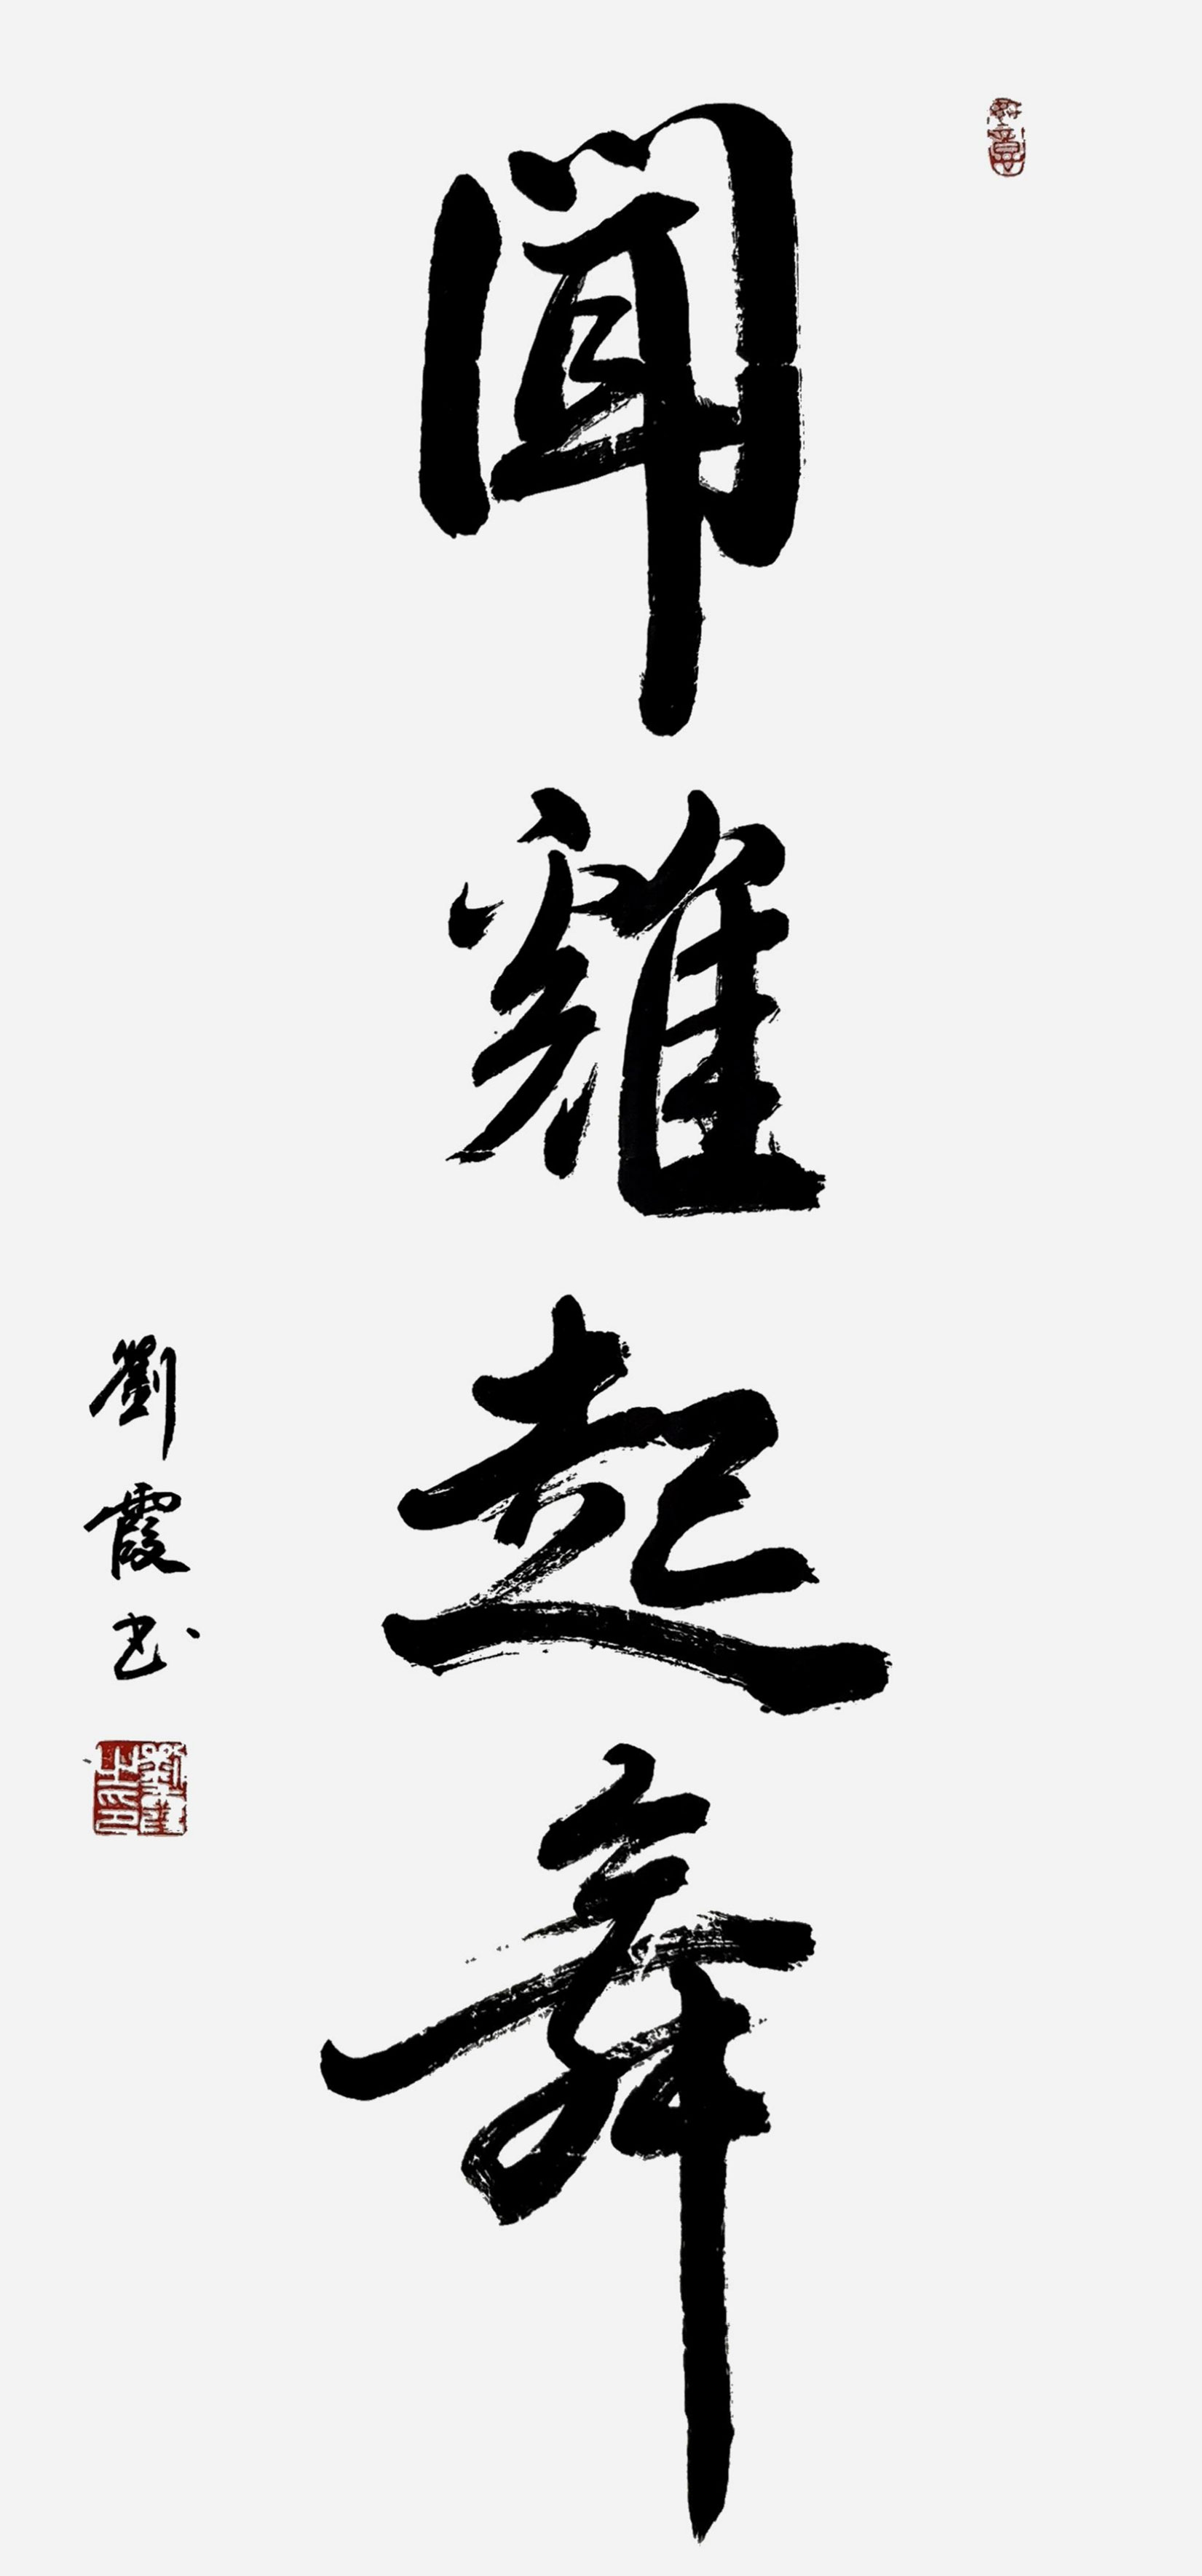 聞雞起舞
劉霞书